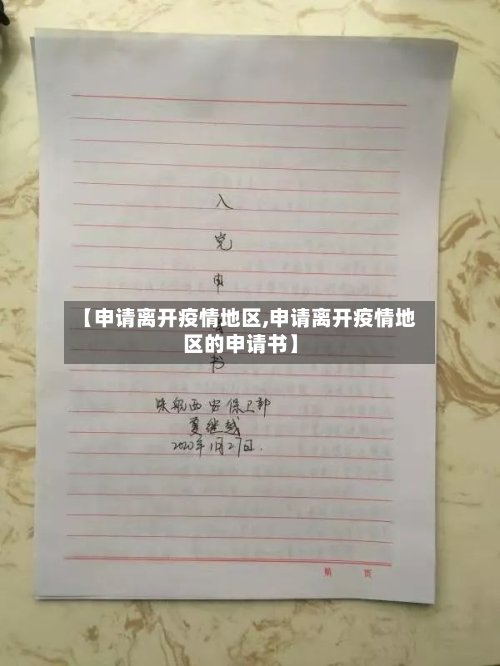 入
党
申
【申请离开疫情地区,申请离开疫情地
区的申请书】
书
西安保卫部
夏继越
2020年1月27日.
第 页